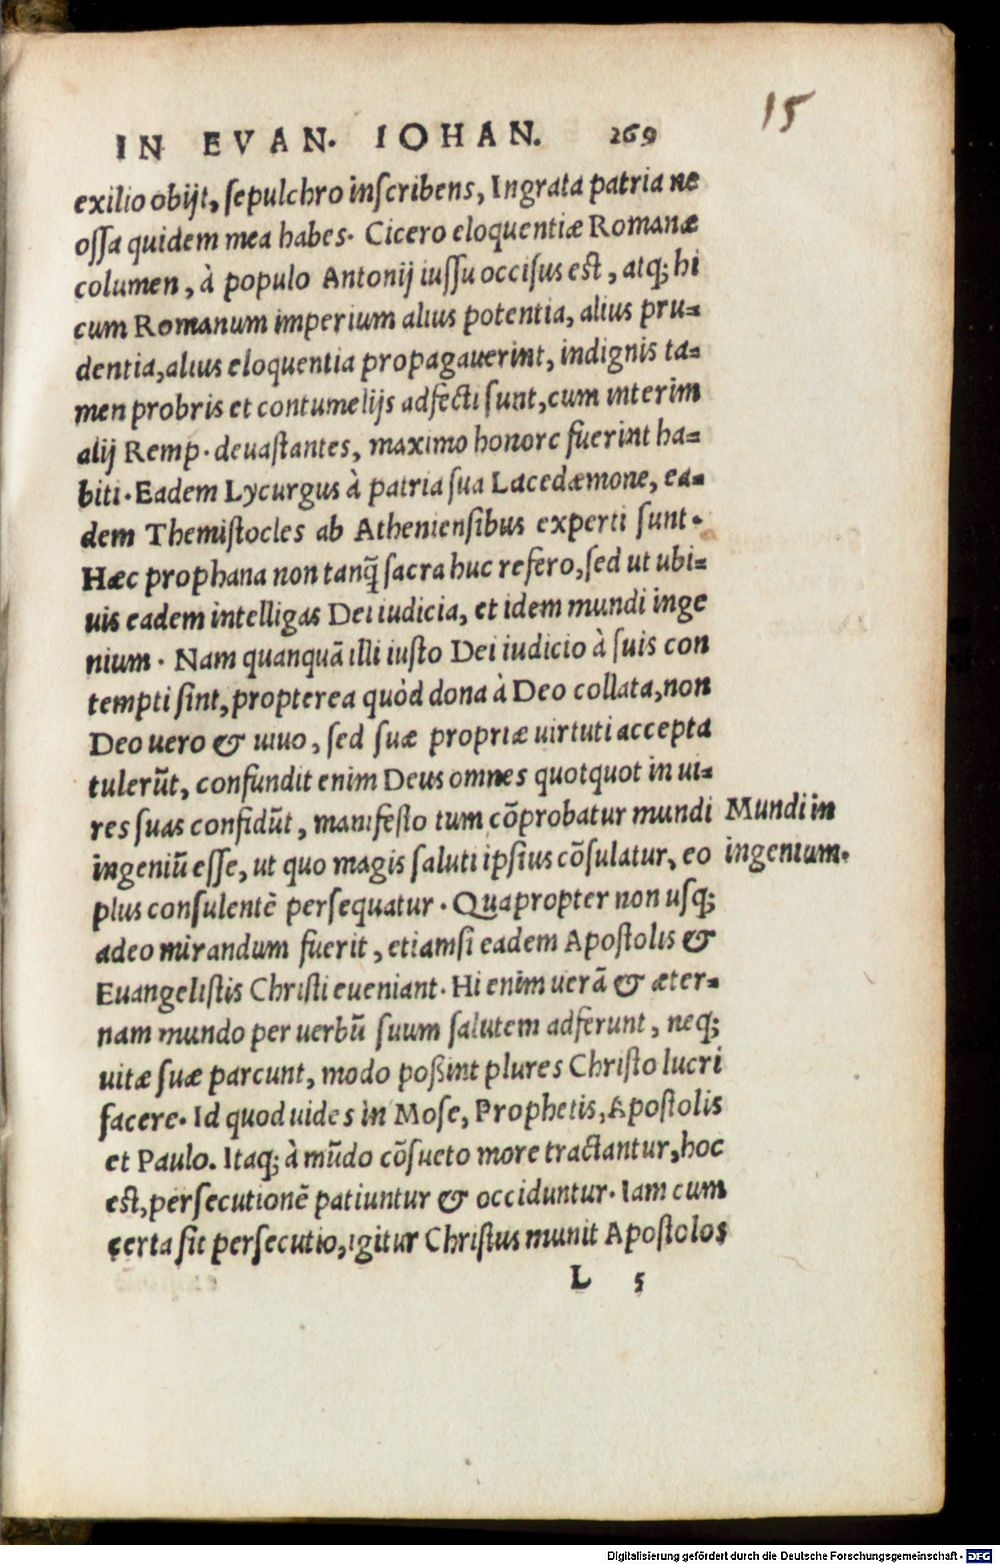 15
IN EVAN. IOHAN. 269
exilio obijt, sepulchro inscribens, Ingrata patria ne
ossa quidem mea habes. Cicero eloquentiæ Romanæ
columen, à populo Antonij iussu occisus est, atq; hi
cum Romanum imperium alius potentia, alius pru=
dentia, alius eloquentia propagauerint, indignis ta=
men probris et contumelijs adfecti sunt, cum interim
alij Remp. deuastantes, maximo honore fuerint ha=
biti. Eadem Lycurgus à patria sua Lacedæmone, ea=
dem Themistocles ab Atheniensibus experti sunt.
Hæc prophana non tanq̃ sacra huc refero, sed ut ubi=
uis eadem intelligas Dei iudicia, et idem mundi inge
nium. Nam quanquā illi iusto Dei iudicio à suis con
tempti sint, propterea quòd dona à Deo collata, non
Deo uero & uiuo, sed suæ propriæ uirtuti accepta
tulerūt, confundit enim Deus omnes quotquot in ui=
res suas confidūt, manifesto tum cōprobatur mundi Mundi in
ingeniū esse, ut quo magis saluti ipsius cōsulatur, eo ingenium.
plus consulentē persequatur. Quapropter non usq;
adeo mirandum fuerit, etiamsi eadem Apostolis &
Euangelistis Christi eueniant. Hi enim uerā & æter=
nam mundo per uerbū suum salutem adferunt, neq;
uitæ suæ parcunt, modo poßint plures Christo lucri
facere. Id quod uides in Mose, Prophetis, Apostolis
et Paulo. Itaq; à mūdo cōsueto more tractantur, hoc
est, persecutionē patiuntur & occiduntur. Iam cum
certa sit persecutio, igitur Christus munit Apostolos
L 5
Digitalisierung gefördert durch die Deutsche Forschungsgemeinschaft - DFG